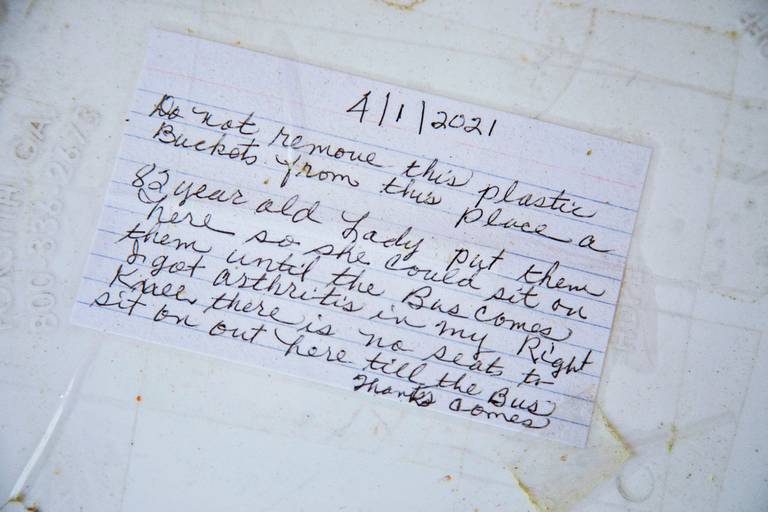 4/1/2021
Do not remove this plastic
Buckets from this place a
82 year old Lady put them
here so she could sit on
them until the Bus Comes
I got arthritis in my Right
Knee there is no seats to
sit on out here till the Bus
Thanks Comes